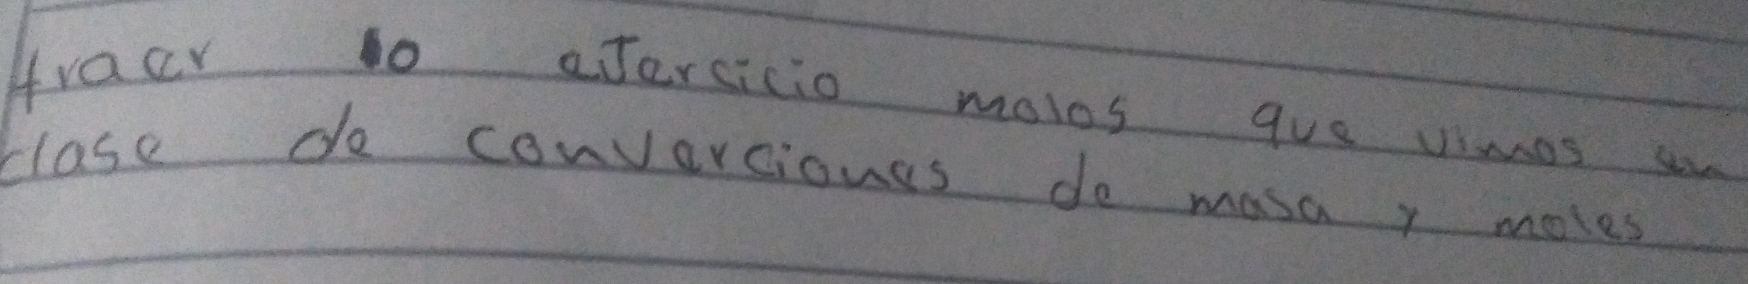 traer 10 ejersicio moles que vimos en
clase de converciones de masa y moles